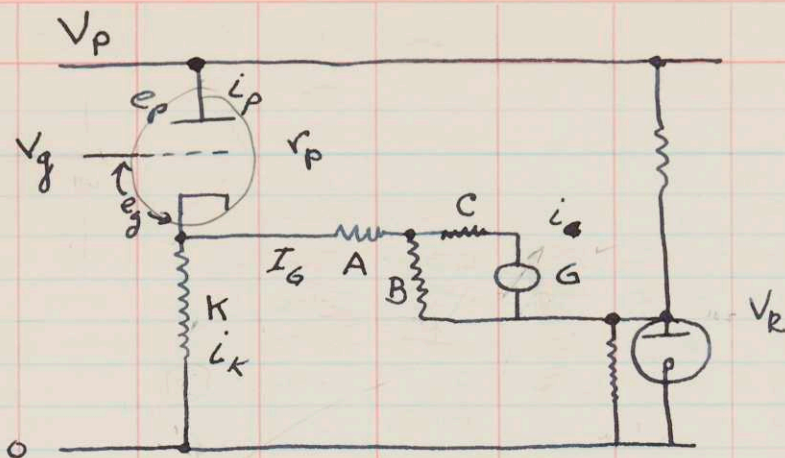 V_P
e_P i_P
V_g r_P
e_g
C i_G
I_G A
B G
K
i_K
V_R
0